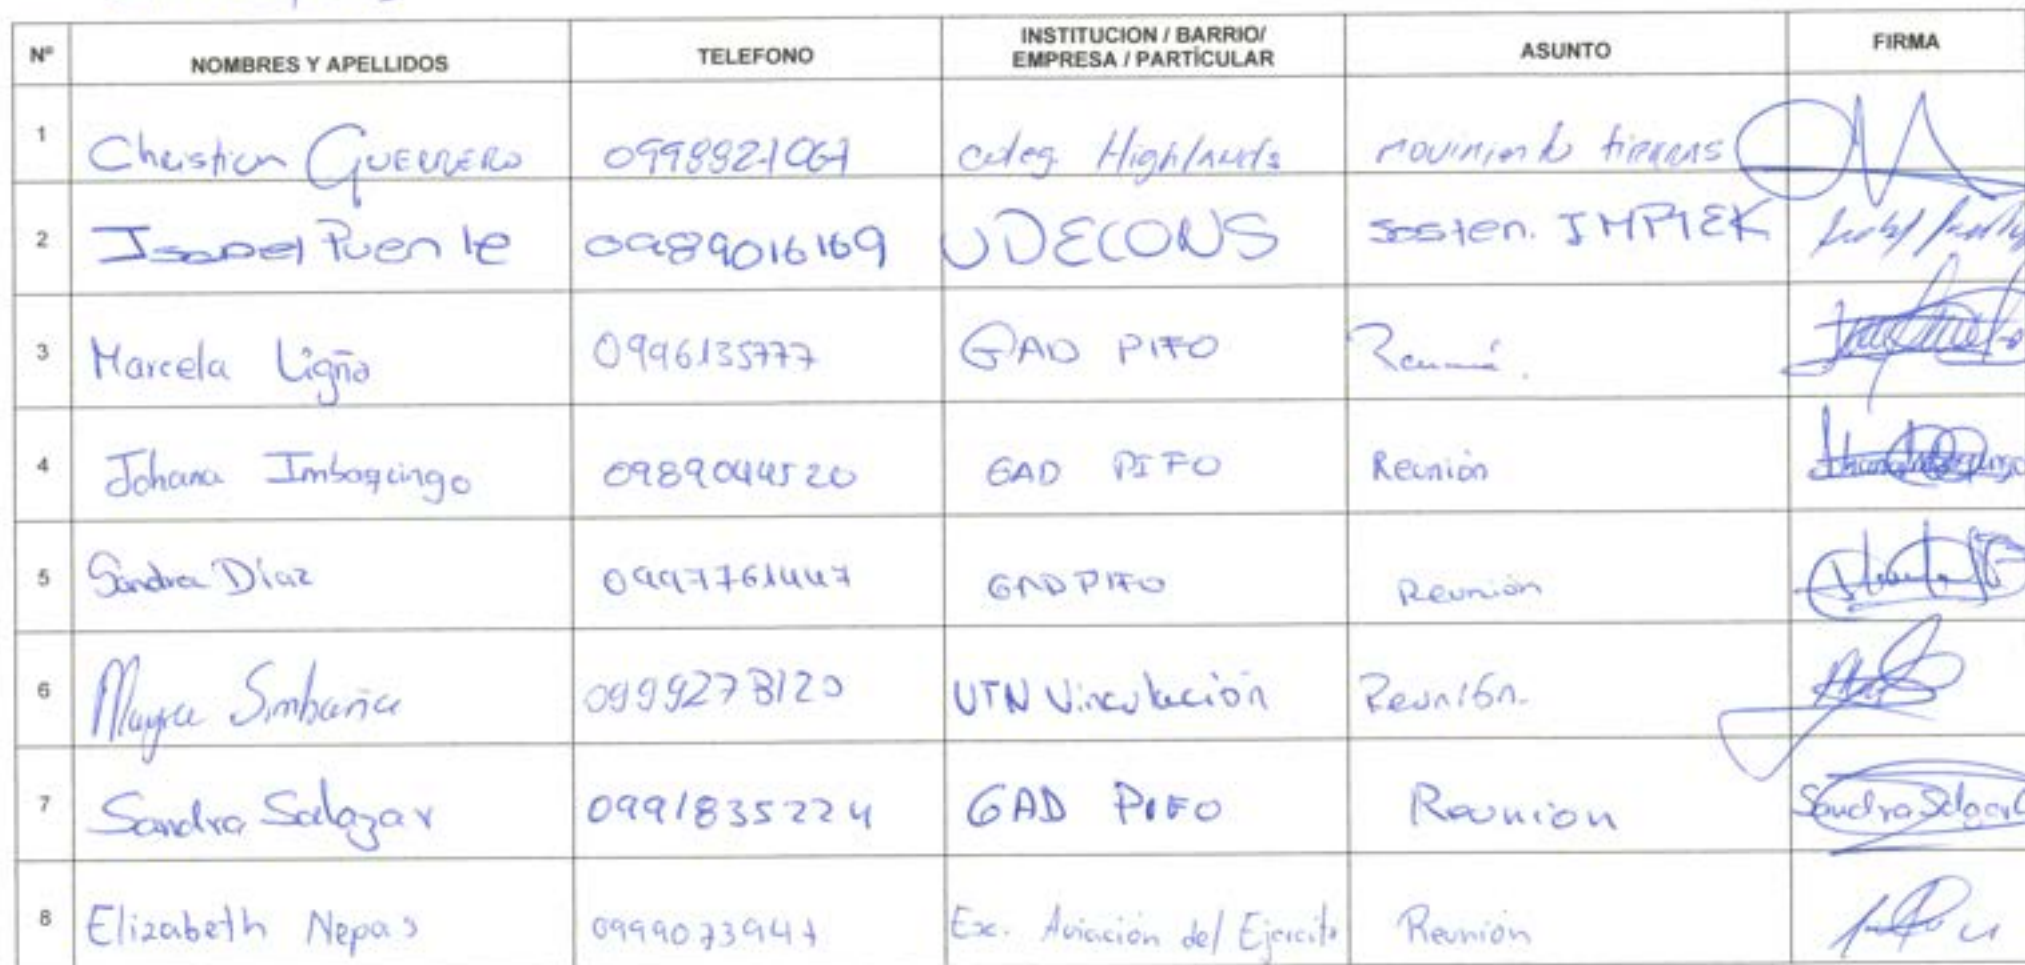 Nº NOMBRES Y APELLIDOS TELEFONO INSTITUCION / BARRIO/ EMPRESA / PARTÍCULAR ASUNTO FIRMA
1 Christian GUERRERO 0998821061 coleg. Highlands movimiento tierras
2 Isabel Puente 0989016169 UDECONS sosten. IMPTEK
3 Marcela Ligña 0996135777 GAD PIFO Reunió.
4 Johana Imbaquingo 0989044520 GAD PIFO Reunión
5 Sandra Díaz 0997761447 GAD PIFO Reunión
6 Mayra Simbaña 0999278120 UTN Vinculación Reunión.
7 Sandra Salazar 0991835224 GAD PIFO Reunion Sandra Salazar
8 Elizabeth Nepas 0999073947 Esc. Aviación del Ejercito Reunión